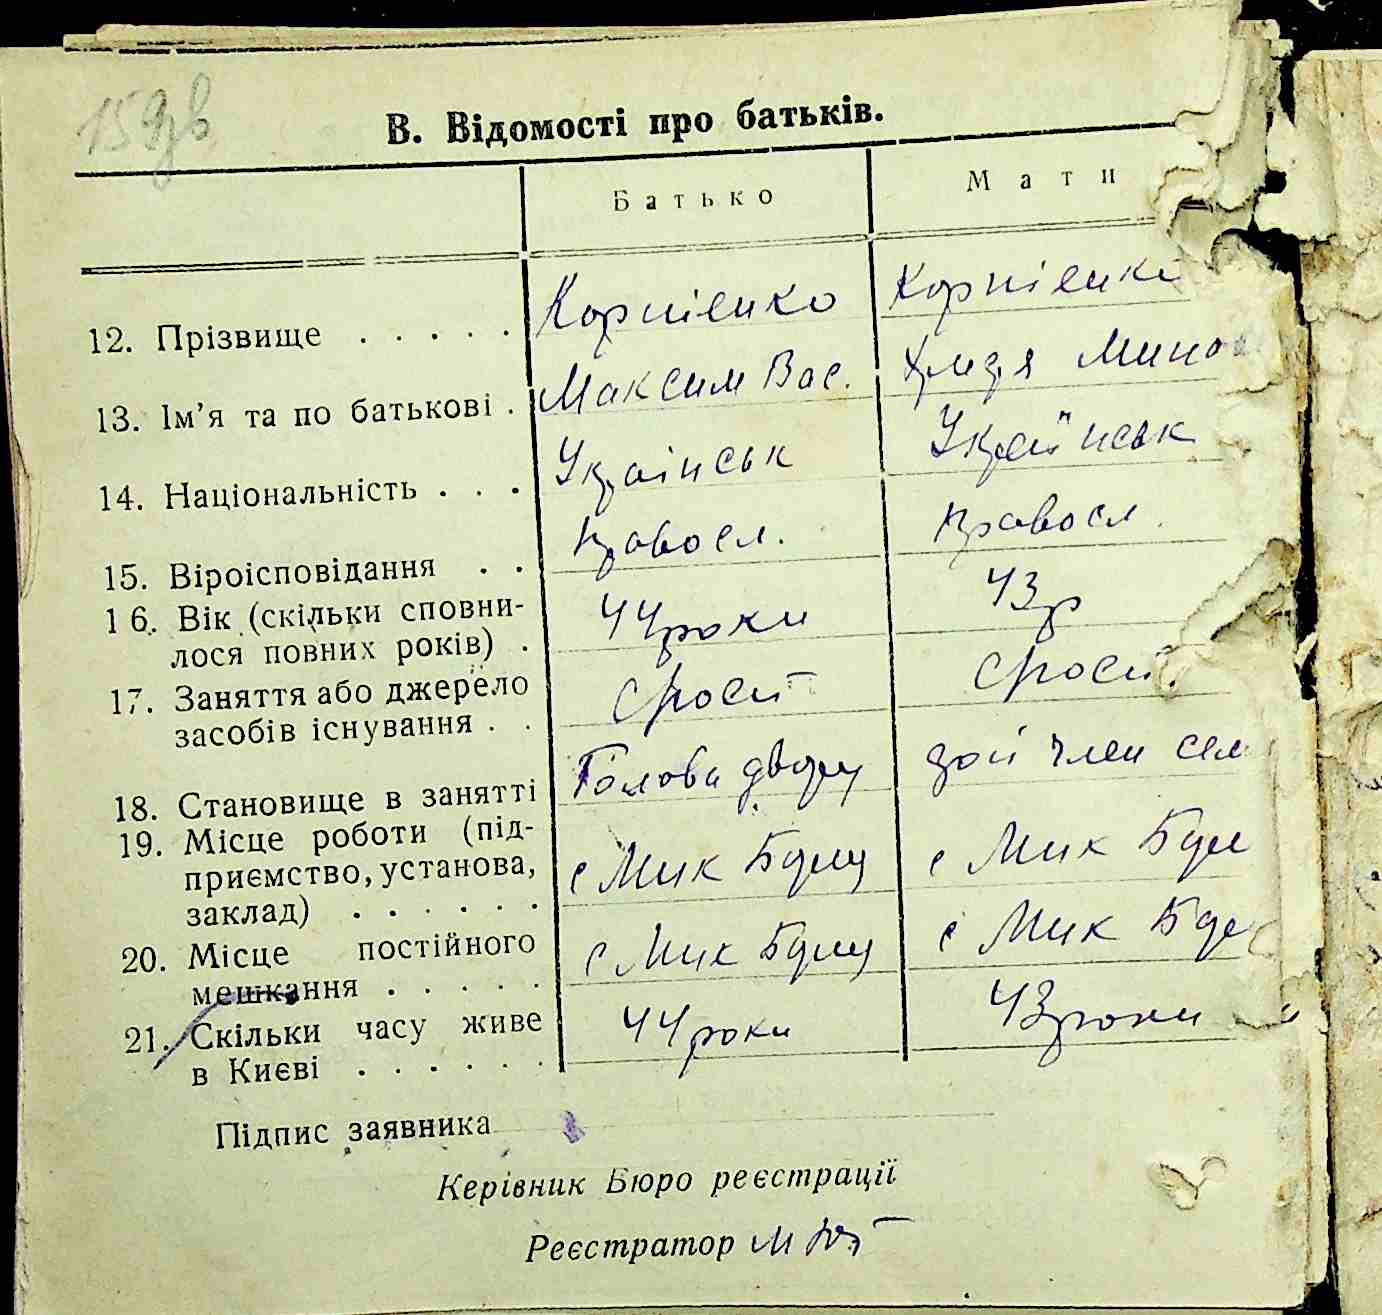 В. Відомості про батьків.
Батько Мати
12. Прізвище . . . . . Корнієнко Корнієнко
13. Ім'я та по батькові . Максим Вас. Мино
14. Національність . . . Українськ Українськ
15. Віроісповідання . . правосл. правосл.
16. Вік (скільки сповни-
лося повних років) . 44 роки 43 р
17. Заняття або джерело
засобів існування . .
18. Становище в занятті Голова двору член сем
19. Місце роботи (під-
приємство, установа,
заклад) . . . . . . с Мик Буди с Мик Буд
20. Місце постійного
мешкання . . . . . с Мик Буди с Мик Буд
21. Скільки часу живе
в Києві . . . . . . 44 роки 43 роки
Підпис заявника
Керівник Бюро реєстрації
Реєстратор